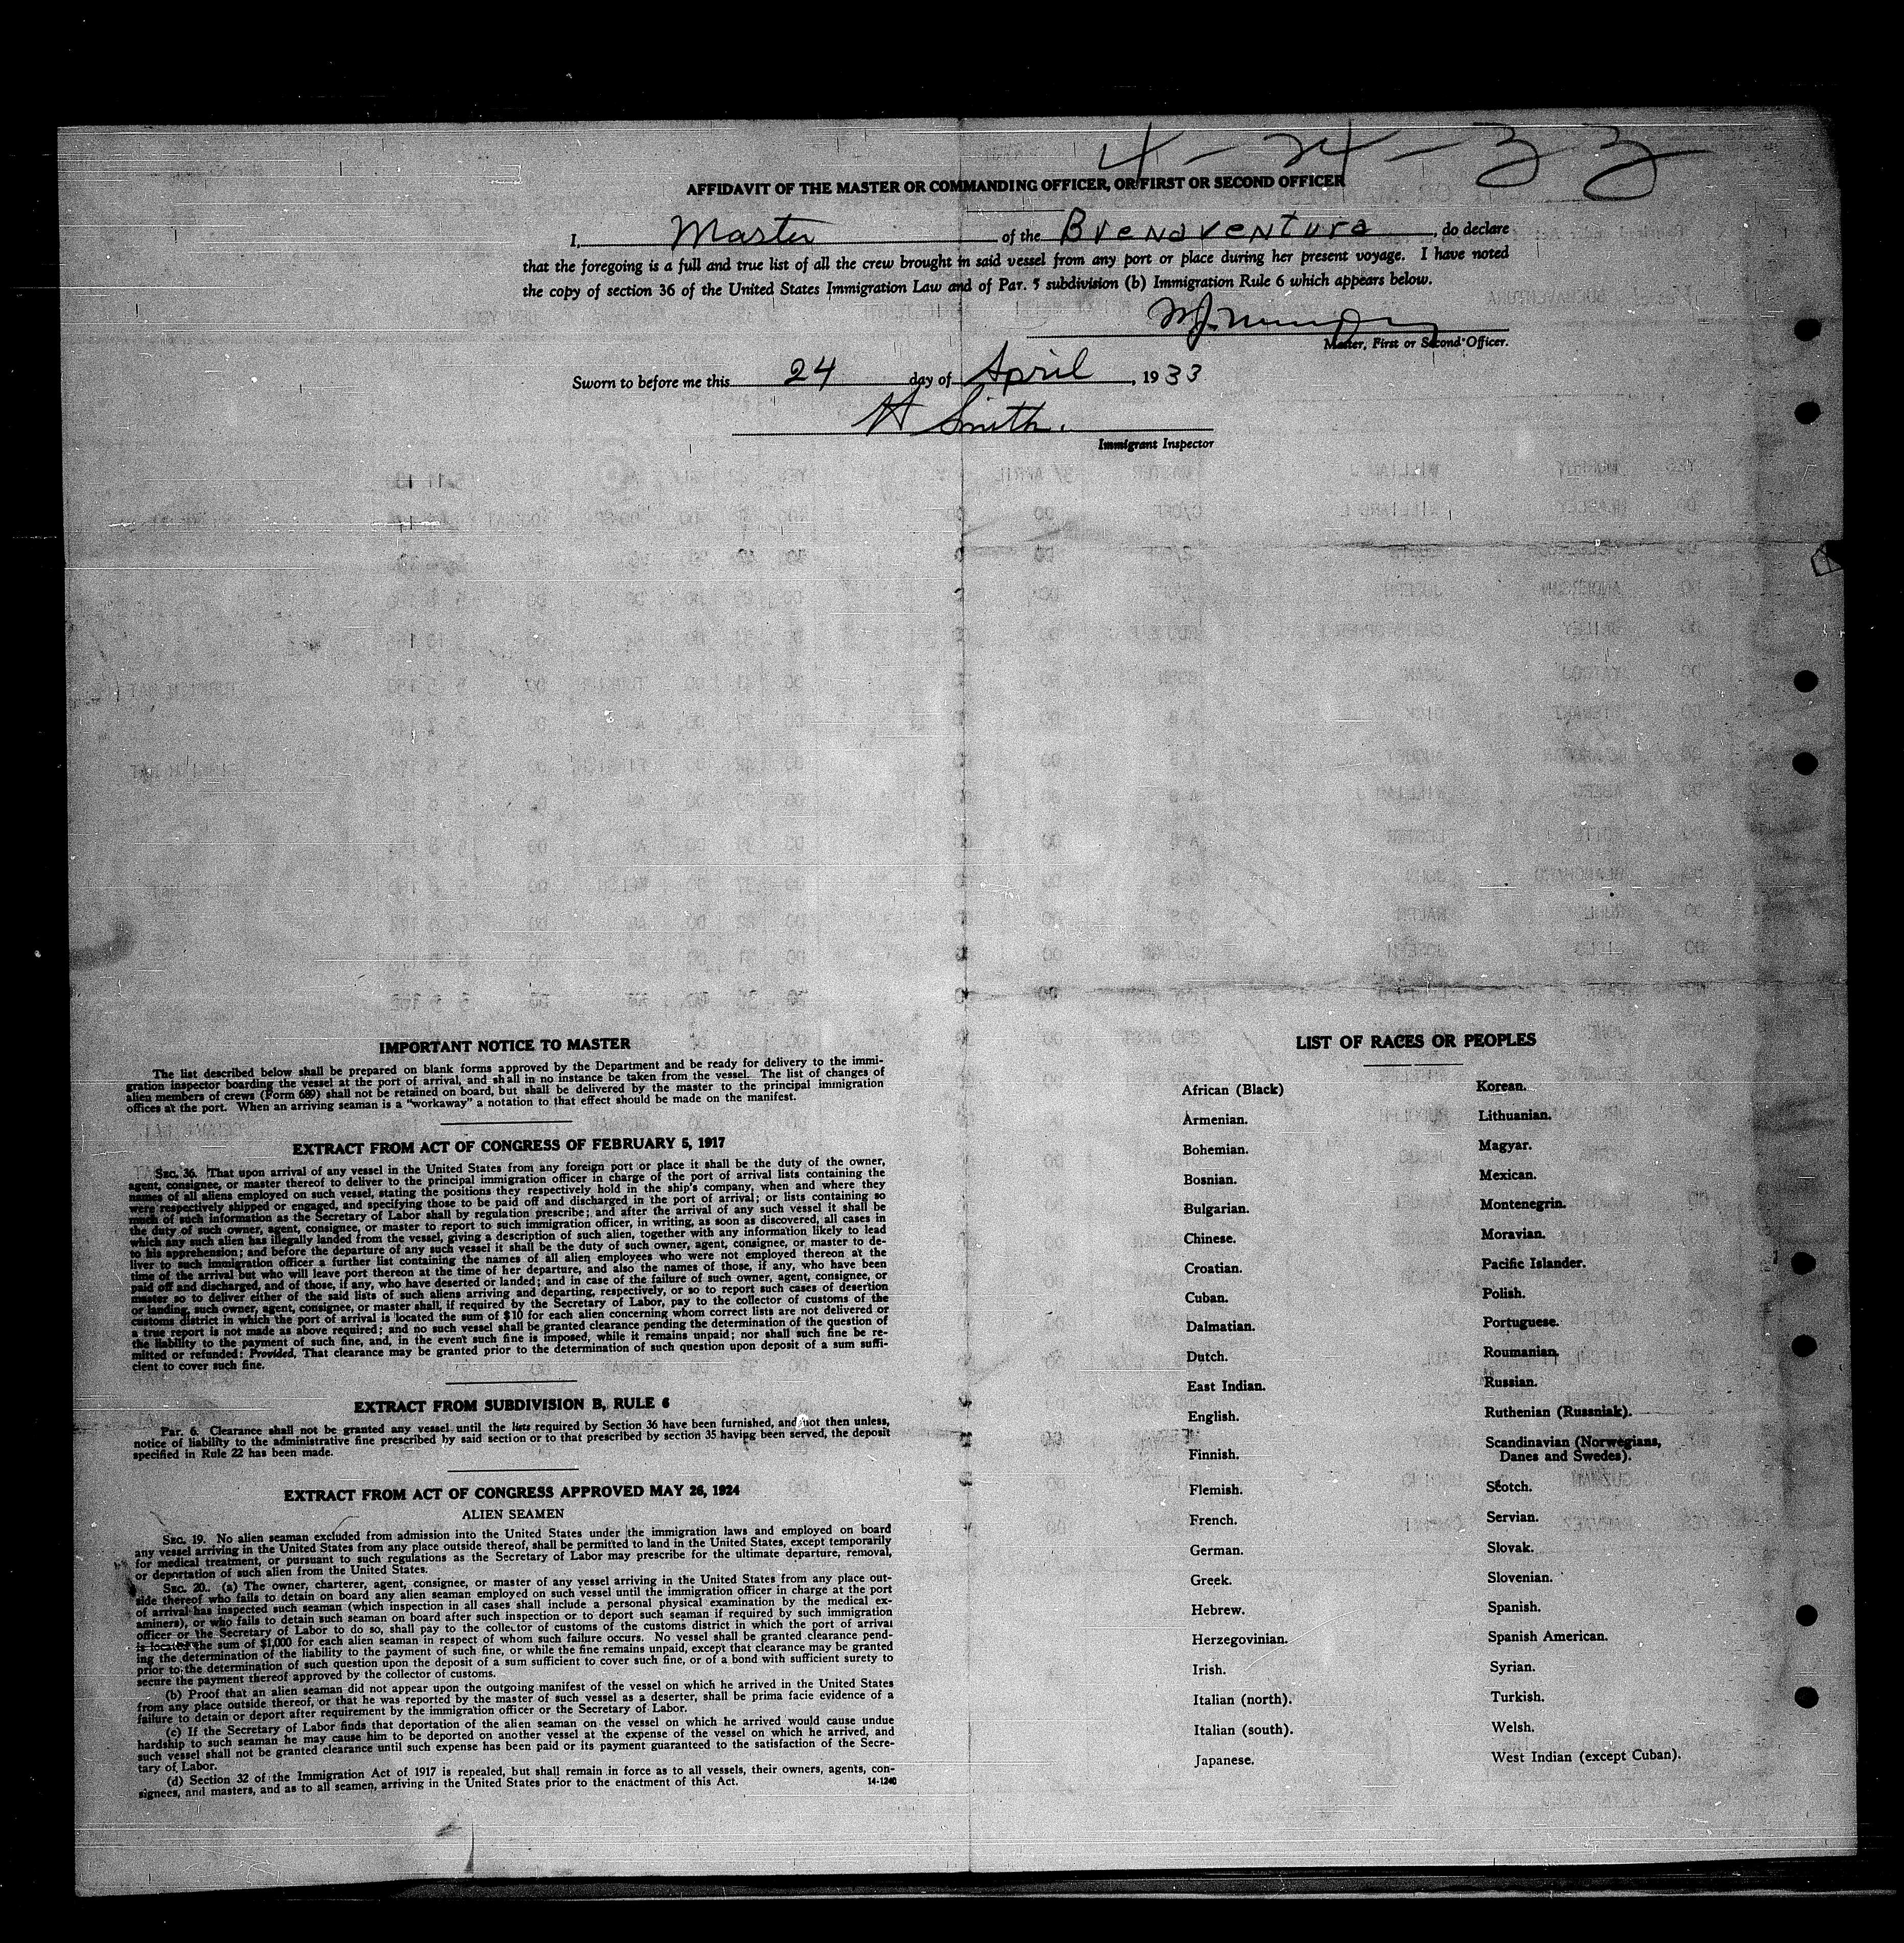 4-24-33
AFFIDAVIT OF THE MASTER OR COMMANDING OFFICER, OR FIRST OR SECOND OFFICER
I, Master of the Buenaventura, do declare
that the foregoing is a full and true list of all the crew brought in said vessel from any port or place during her present voyage. I have noted
the copy of section 36 of the United States Immigration Law and of Par. 5 subdivision (b) Immigration Rule 6 which appears below.
Master, First or Second Officer.
Sworn to before me this 24 day of April, 1933
H Smith.
Immigrant Inspector
IMPORTANT NOTICE TO MASTER
The list described below shall be prepared on blank forms approved by the Department and be ready for delivery to the immi-
gration inspector boarding the vessel at the port of arrival, and shall in no instance be taken from the vessel. The list of changes of
alien members of crews (Form 689) shall not be retained on board, but shall be delivered by the master to the principal immigration
offices at the port. When an arriving seaman is a "workaway" a notation to that effect should be made on the manifest.
EXTRACT FROM ACT OF CONGRESS OF FEBRUARY 5, 1917
SEC. 36. That upon arrival of any vessel in the United States from any foreign port or place it shall be the duty of the owner,
agent, consignee, or master thereof to deliver to the principal immigration officer in charge of the port of arrival lists containing the
names of all aliens employed on such vessel, stating the positions they respectively hold in the ship's company, when and where they
were respectively shipped or engaged, and specifying those to be paid off and discharged in the port of arrival; or lists containing so
much of such information as the Secretary of Labor shall by regulation prescribe; and after the arrival of any such vessel it shall be
the duty of such owner, agent, consignee, or master to report to such immigration officer, in writing, as soon as discovered, all cases in
which any such alien has illegally landed from the vessel, giving a description of such alien, together with any information likely to lead
to his apprehension; and before the departure of any such vessel it shall be the duty of such owner, agent, consignee, or master to de-
liver to such immigration officer a further list containing the names of all alien employees who were not employed thereon at the
time of the arrival but who will leave port thereon at the time of her departure, and also the names of those, if any, who have been
paid off and discharged, and of those, if any, who have deserted or landed; and in case of the failure of such owner, agent, consignee, or
master so to deliver either of the said lists of such aliens arriving and departing, respectively, or so to report such cases of desertion
or landing, such owner, agent, consignee, or master shall, if required by the Secretary of Labor, pay to the collector of customs of the
customs district in which the port of arrival is located the sum of $10 for each alien concerning whom correct lists are not delivered or
a true report is not made as above required; and no such vessel shall be granted clearance pending the determination of the question of
the liability to the payment of such fine, and, in the event such fine is imposed, while it remains unpaid; nor shall such fine be re-
mitted or refunded: Provided, That clearance may be granted prior to the determination of such question upon deposit of a sum suffi-
cient to cover such fine.
EXTRACT FROM SUBDIVISION B, RULE 6
Par. 6. Clearance shall not be granted any vessel until the lists required by Section 36 have been furnished, and not then unless,
notice of liability to the administrative fine prescribed by said section or to that prescribed by section 35 having been served, the deposit
specified in Rule 22 has been made.
EXTRACT FROM ACT OF CONGRESS APPROVED MAY 26, 1924
ALIEN SEAMEN
SEC. 19. No alien seaman excluded from admission into the United States under the immigration laws and employed on board
any vessel arriving in the United States from any place outside thereof, shall be permitted to land in the United States, except temporarily
for medical treatment, or pursuant to such regulations as the Secretary of Labor may prescribe for the ultimate departure, removal,
or deportation of such alien from the United States.
SEC. 20. (a) The owner, charterer, agent, consignee, or master of any vessel arriving in the United States from any place out-
side thereof who fails to detain on board any alien seaman employed on such vessel until the immigration officer in charge at the port
of arrival has inspected such seaman (which inspection in all cases shall include a personal physical examination by the medical ex-
aminers), or who fails to detain such seaman on board after such inspection or to deport such seaman if required by such immigration
officer or the Secretary of Labor to do so, shall pay to the collector of customs of the customs district in which the port of arrival
is located the sum of $1,000 for each alien seaman in respect of whom such failure occurs. No vessel shall be granted clearance pend-
ing the determination of the liability to the payment of such fine, or while the fine remains unpaid, except that clearance may be granted
prior to the determination of such question upon the deposit of a sum sufficient to cover such fine, or of a bond with sufficient surety to
secure the payment thereof approved by the collector of customs.
(b) Proof that an alien seaman did not appear upon the outgoing manifest of the vessel on which he arrived in the United States
from any place outside thereof, or that he was reported by the master of such vessel as a deserter, shall be prima facie evidence of a
failure to detain or deport after requirement by the immigration officer or the Secretary of Labor.
(c) If the Secretary of Labor finds that deportation of the alien seaman on the vessel on which he arrived would cause undue
hardship to such seaman he may cause him to be deported on another vessel at the expense of the vessel on which he arrived, and
such vessel shall not be granted clearance until such expense has been paid or its payment guaranteed to the satisfaction of the Secre-
tary of Labor.
(d) Section 32 of the Immigration Act of 1917 is repealed, but shall remain in force as to all vessels, their owners, agents, con-
signees, and masters, and as to all seamen, arriving in the United States prior to the enactment of this Act. 14-1240
LIST OF RACES OR PEOPLES
African (Black)
Armenian.
Bohemian.
Bosnian.
Bulgarian.
Chinese.
Croatian.
Cuban.
Dalmatian.
Dutch.
East Indian.
English.
Finnish.
Flemish.
French.
German.
Greek.
Hebrew.
Herzegovinian.
Irish.
Italian (north).
Italian (south).
Japanese.
Korean.
Lithuanian.
Magyar.
Mexican.
Montenegrin.
Moravian.
Pacific Islander.
Polish.
Portuguese.
Roumanian.
Russian.
Ruthenian (Russniak).
Scandinavian (Norwegians,
Danes and Swedes).
Scotch.
Servian.
Slovak.
Slovenian.
Spanish.
Spanish American.
Syrian.
Turkish.
Welsh.
West Indian (except Cuban).